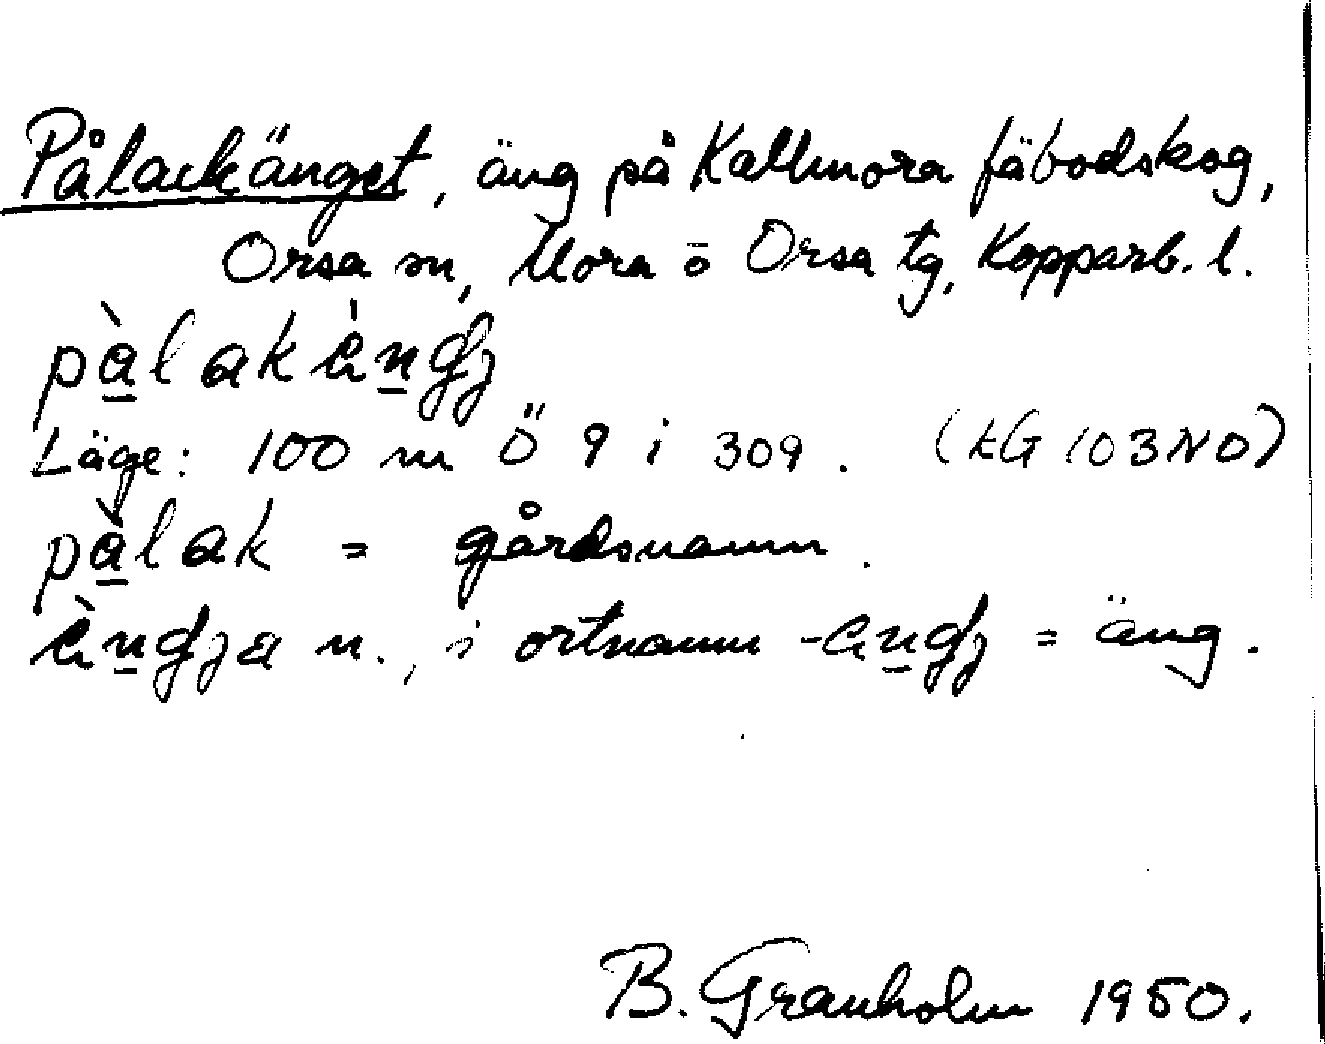 Pålackänget, äng på Kallmora fäbodskog,
Orsa sn, Mora o Orsa tg, Kopparb. l.
pàlakèngj
Läge: 100 m Ö 9 i 309. (EG 103NO)
pàlak = gårdsnamn.
èngja n., i ortnamn -engj = äng.
B. Granholm 1950.